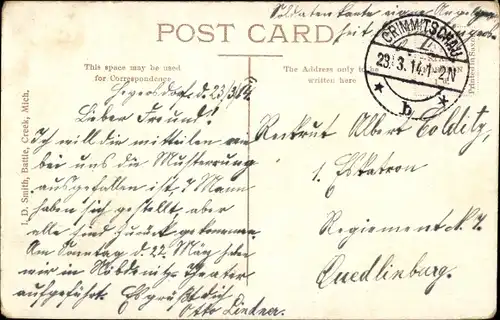 Soldatenkarte eigne Angelegenheit
POST CARD
This space may be used
for Correspondence
The Address only to be
written here
CRIMMITSCHAU
23.3.14.1-2N
* b *
Printed in Saxony
I. D. Smith, Battle Creek, Mich.
d. 23/3/14.
Lieber Freund!
Ich will dir mitteilen wie
bei uns die Musterrung
ausgefallen ist. 7 Mann
haben sich gestellt, aber
alle sind zurück gekommen.
Am Sonntag d. 22. März haben
wir in Nöbdenitz Theater
aufgeführt. Es grüßt dich
Otto Lindner.
Rekrut Albert Colditz
1. Eskatron
Regiement N. 7.
Quedlinburg.